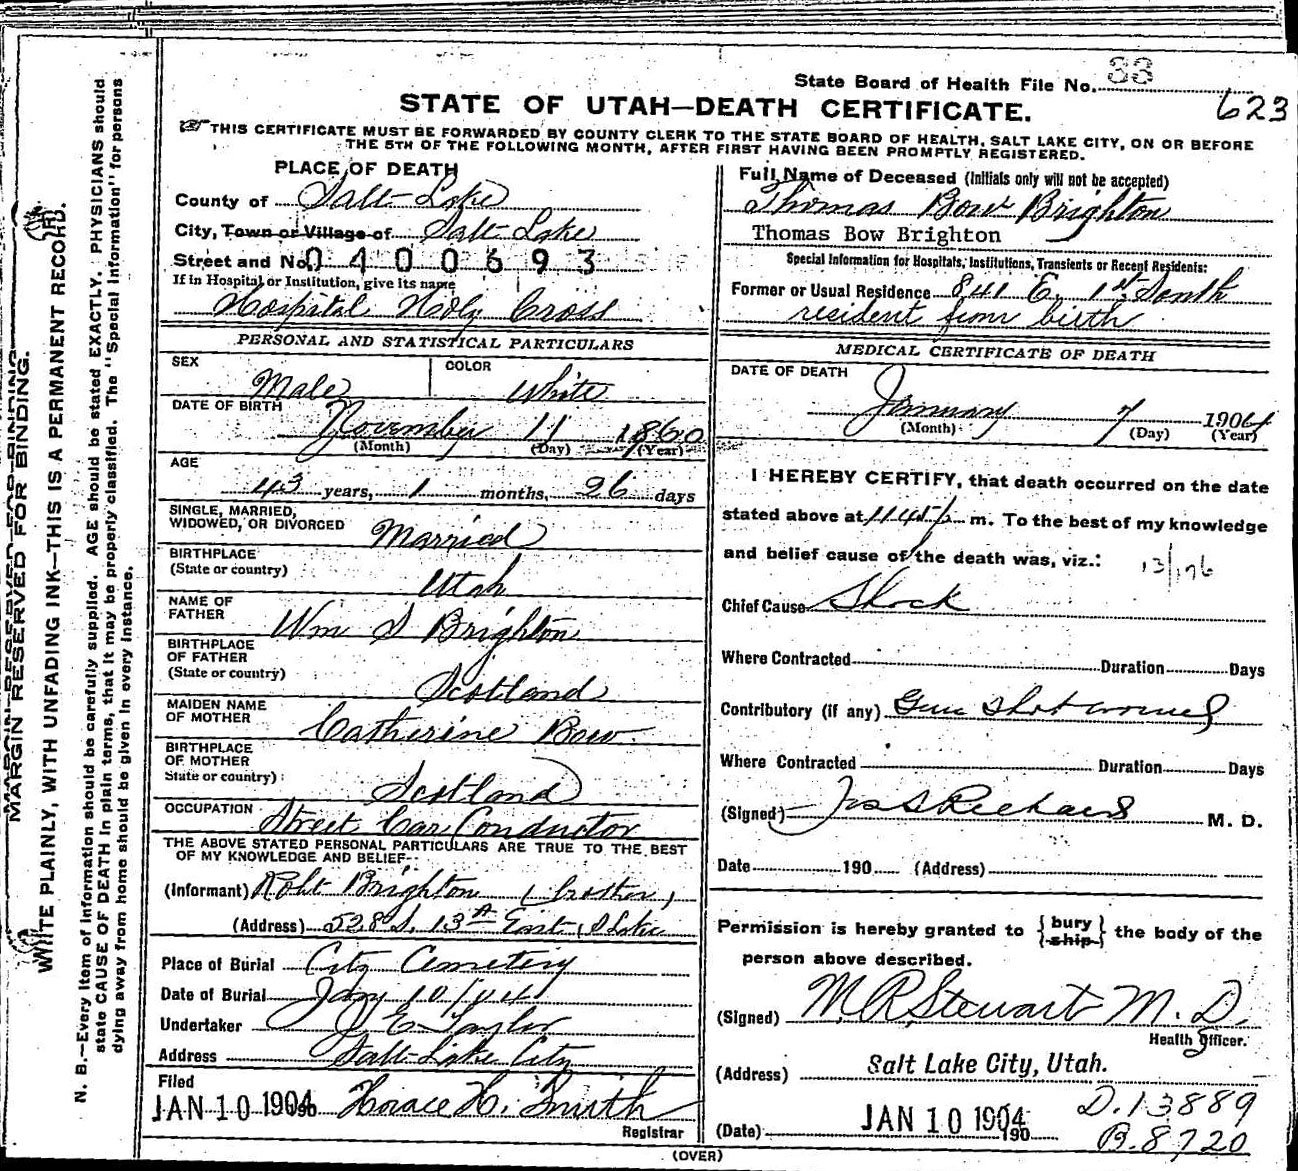 State Board of Health File No. 33
623
STATE OF UTAH—DEATH CERTIFICATE.
THIS CERTIFICATE MUST BE FORWARDED BY COUNTY CLERK TO THE STATE BOARD OF HEALTH, SALT LAKE CITY, ON OR BEFORE
THE 5TH OF THE FOLLOWING MONTH, AFTER FIRST HAVING BEEN PROMPTLY REGISTERED.
MARGIN RESERVED FOR BINDING.
WRITE PLAINLY, WITH UNFADING INK—THIS IS A PERMANENT RECORD.
N. B.—Every item of information should be carefully supplied. AGE should be stated EXACTLY. PHYSICIANS should
state CAUSE OF DEATH in plain terms, that it may be properly classified. The "Special Information" for persons
dying away from home should be given in every instance.
PLACE OF DEATH
County of Salt Lake
City, Town or Village of Salt Lake
Street and No. 0400693
If in Hospital or Institution, give its name
Hospital Holy Cross
PERSONAL AND STATISTICAL PARTICULARS
SEX Male
COLOR White
DATE OF BIRTH
November 11 1860
(Month) (Day) (Year)
AGE
43 years, 1 months, 26 days
SINGLE, MARRIED,
WIDOWED, OR DIVORCED Married
BIRTHPLACE
(State or country) Utah
NAME OF
FATHER Wm S Brighton
BIRTHPLACE
OF FATHER
(State or country) Scotland
MAIDEN NAME
OF MOTHER Catherine Bow
BIRTHPLACE
OF MOTHER
State or country) Scotland
OCCUPATION Street Car Conductor
THE ABOVE STATED PERSONAL PARTICULARS ARE TRUE TO THE BEST
OF MY KNOWLEDGE AND BELIEF
(Informant) Robt Brighton (brother)
(Address) 528 S. 13th East, S Lake
Place of Burial City Cemetery
Date of Burial Jany 10/04
Undertaker S E Taylor
Address Salt Lake City
Filed
JAN 10 1904 Horace H. Smith
Registrar
Full Name of Deceased (Initials only will not be accepted)
Thomas Bow Brighton
Thomas Bow Brighton
Special Information for Hospitals, Institutions, Transients or Recent Residents:
Former or Usual Residence 841 E. 1st South
resident from birth
MEDICAL CERTIFICATE OF DEATH
DATE OF DEATH
January 7 1904
(Month) (Day) (Year)
I HEREBY CERTIFY, that death occurred on the date
stated above at 1145 p m. To the best of my knowledge
and belief cause of the death was, viz.: 13/176
Chief Cause Shock
Where Contracted Duration Days
Contributory (if any) Gun Shot wound
Where Contracted Duration Days
(Signed) Richards M. D.
Date 190 (Address)
Permission is hereby granted to {bury ship} the body of the
person above described.
(Signed) M. R Stewart M. D.
Health Officer.
(Address) Salt Lake City, Utah.
(Date) JAN 10 1904 190
D. 13889
B. 8720
(OVER)